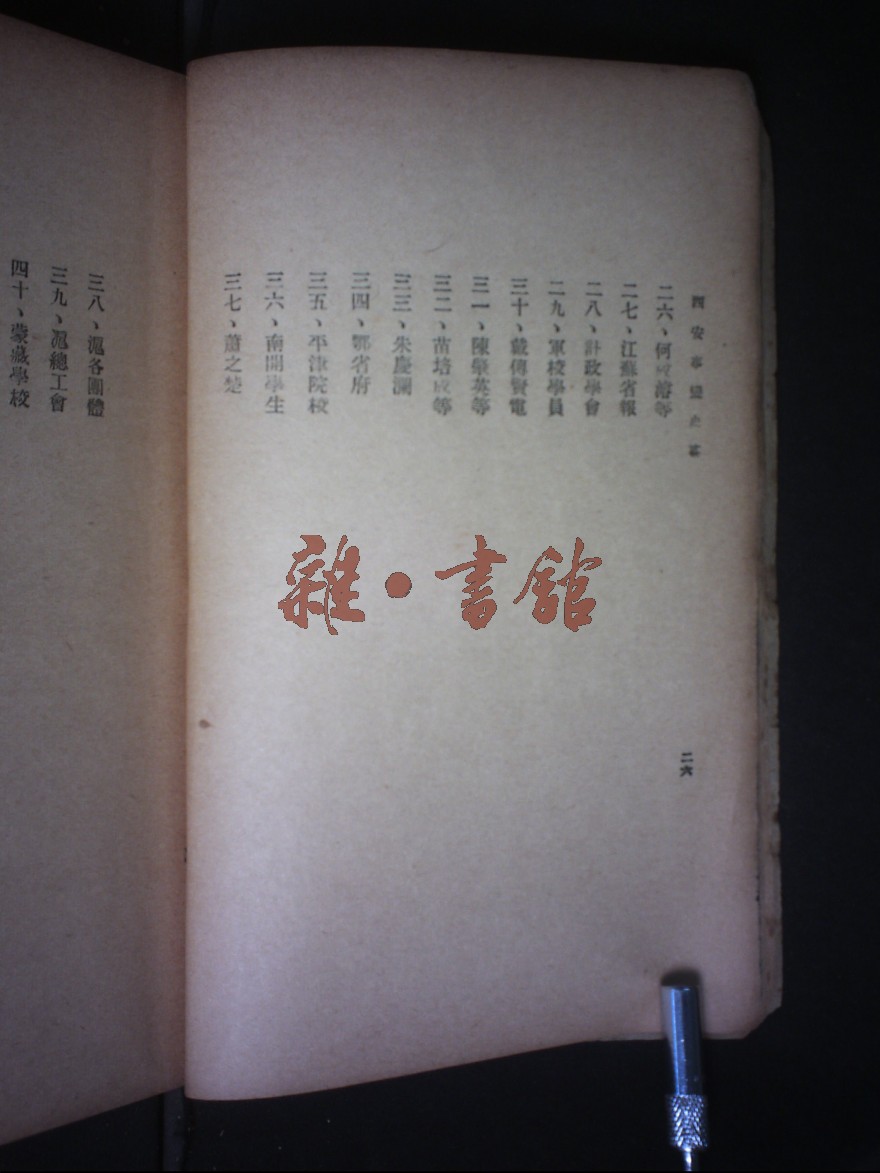 西安事變史畧
二六、何成濬等
二七、江蘇省報
二八、計政學會
二九、軍校學員
三十、戴傳賢電
三一、陳肇英等
三二、苗培成等
三三、朱慶瀾
三四、鄂省府
三五、平津院校
三六、南開學生
三七、蕭之楚
二六
三八、滬各團體
三九、滬總工會
四十、蒙藏學校
雜·書館